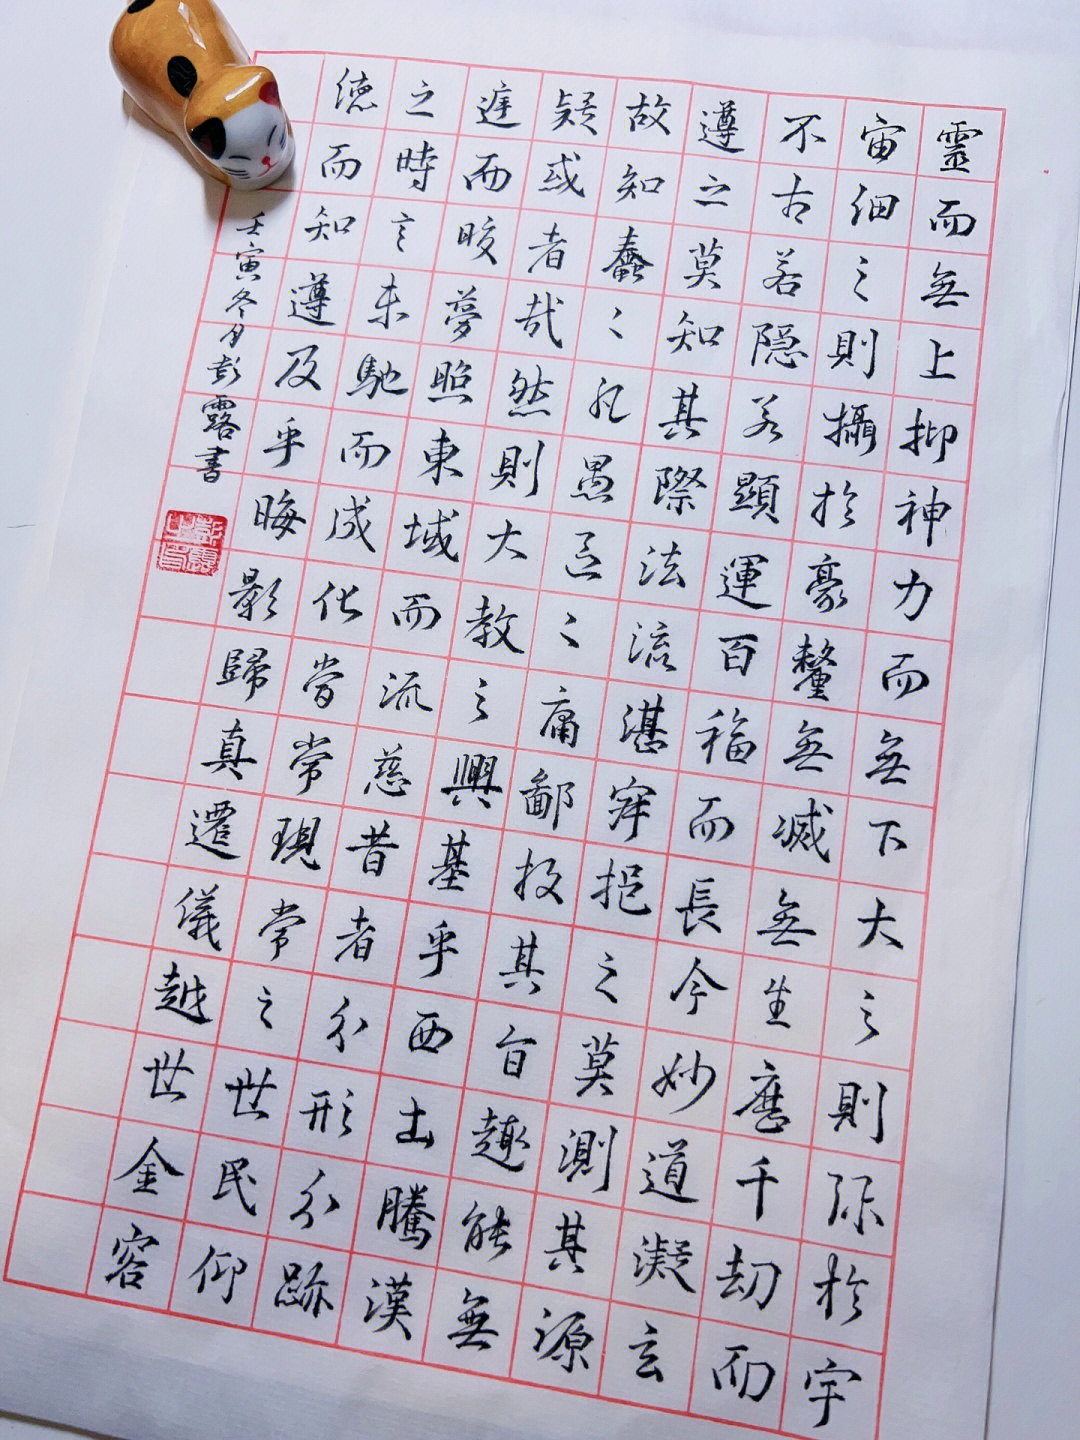 靈而無上抑神力而無下大之則弥於宇
宙細之則攝於豪釐無滅無生歷千劫而
不古若隱若顯運百福而長今妙道凝玄
遵之莫知其際法流湛寂挹之莫測其源
故知蠢々凡愚區々庸鄙投其旨趣能無
疑或者哉然則大教之興基乎西土騰漢
庭而皎夢照東域而流慈昔者分形分跡
之時言未馳而成化當常現常之世民仰
德而知遵及乎晦影歸真遷儀越世金容
壬寅冬月彭露書
彭露之印